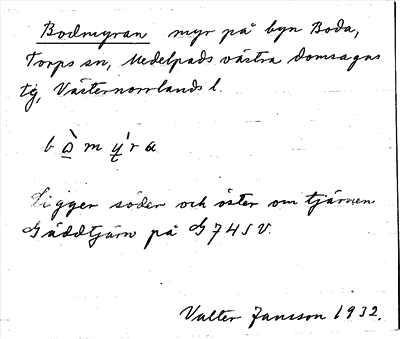 Bodmyran myr på byn Boda,
Torps sn, Medelpads västra domsagas
tg, Västernorrlands l.
b ò m y ́ r a
Ligger söder och öster om tjärnen
Gäddtjärn på G 74 SV.
Valter Jansson 1932.